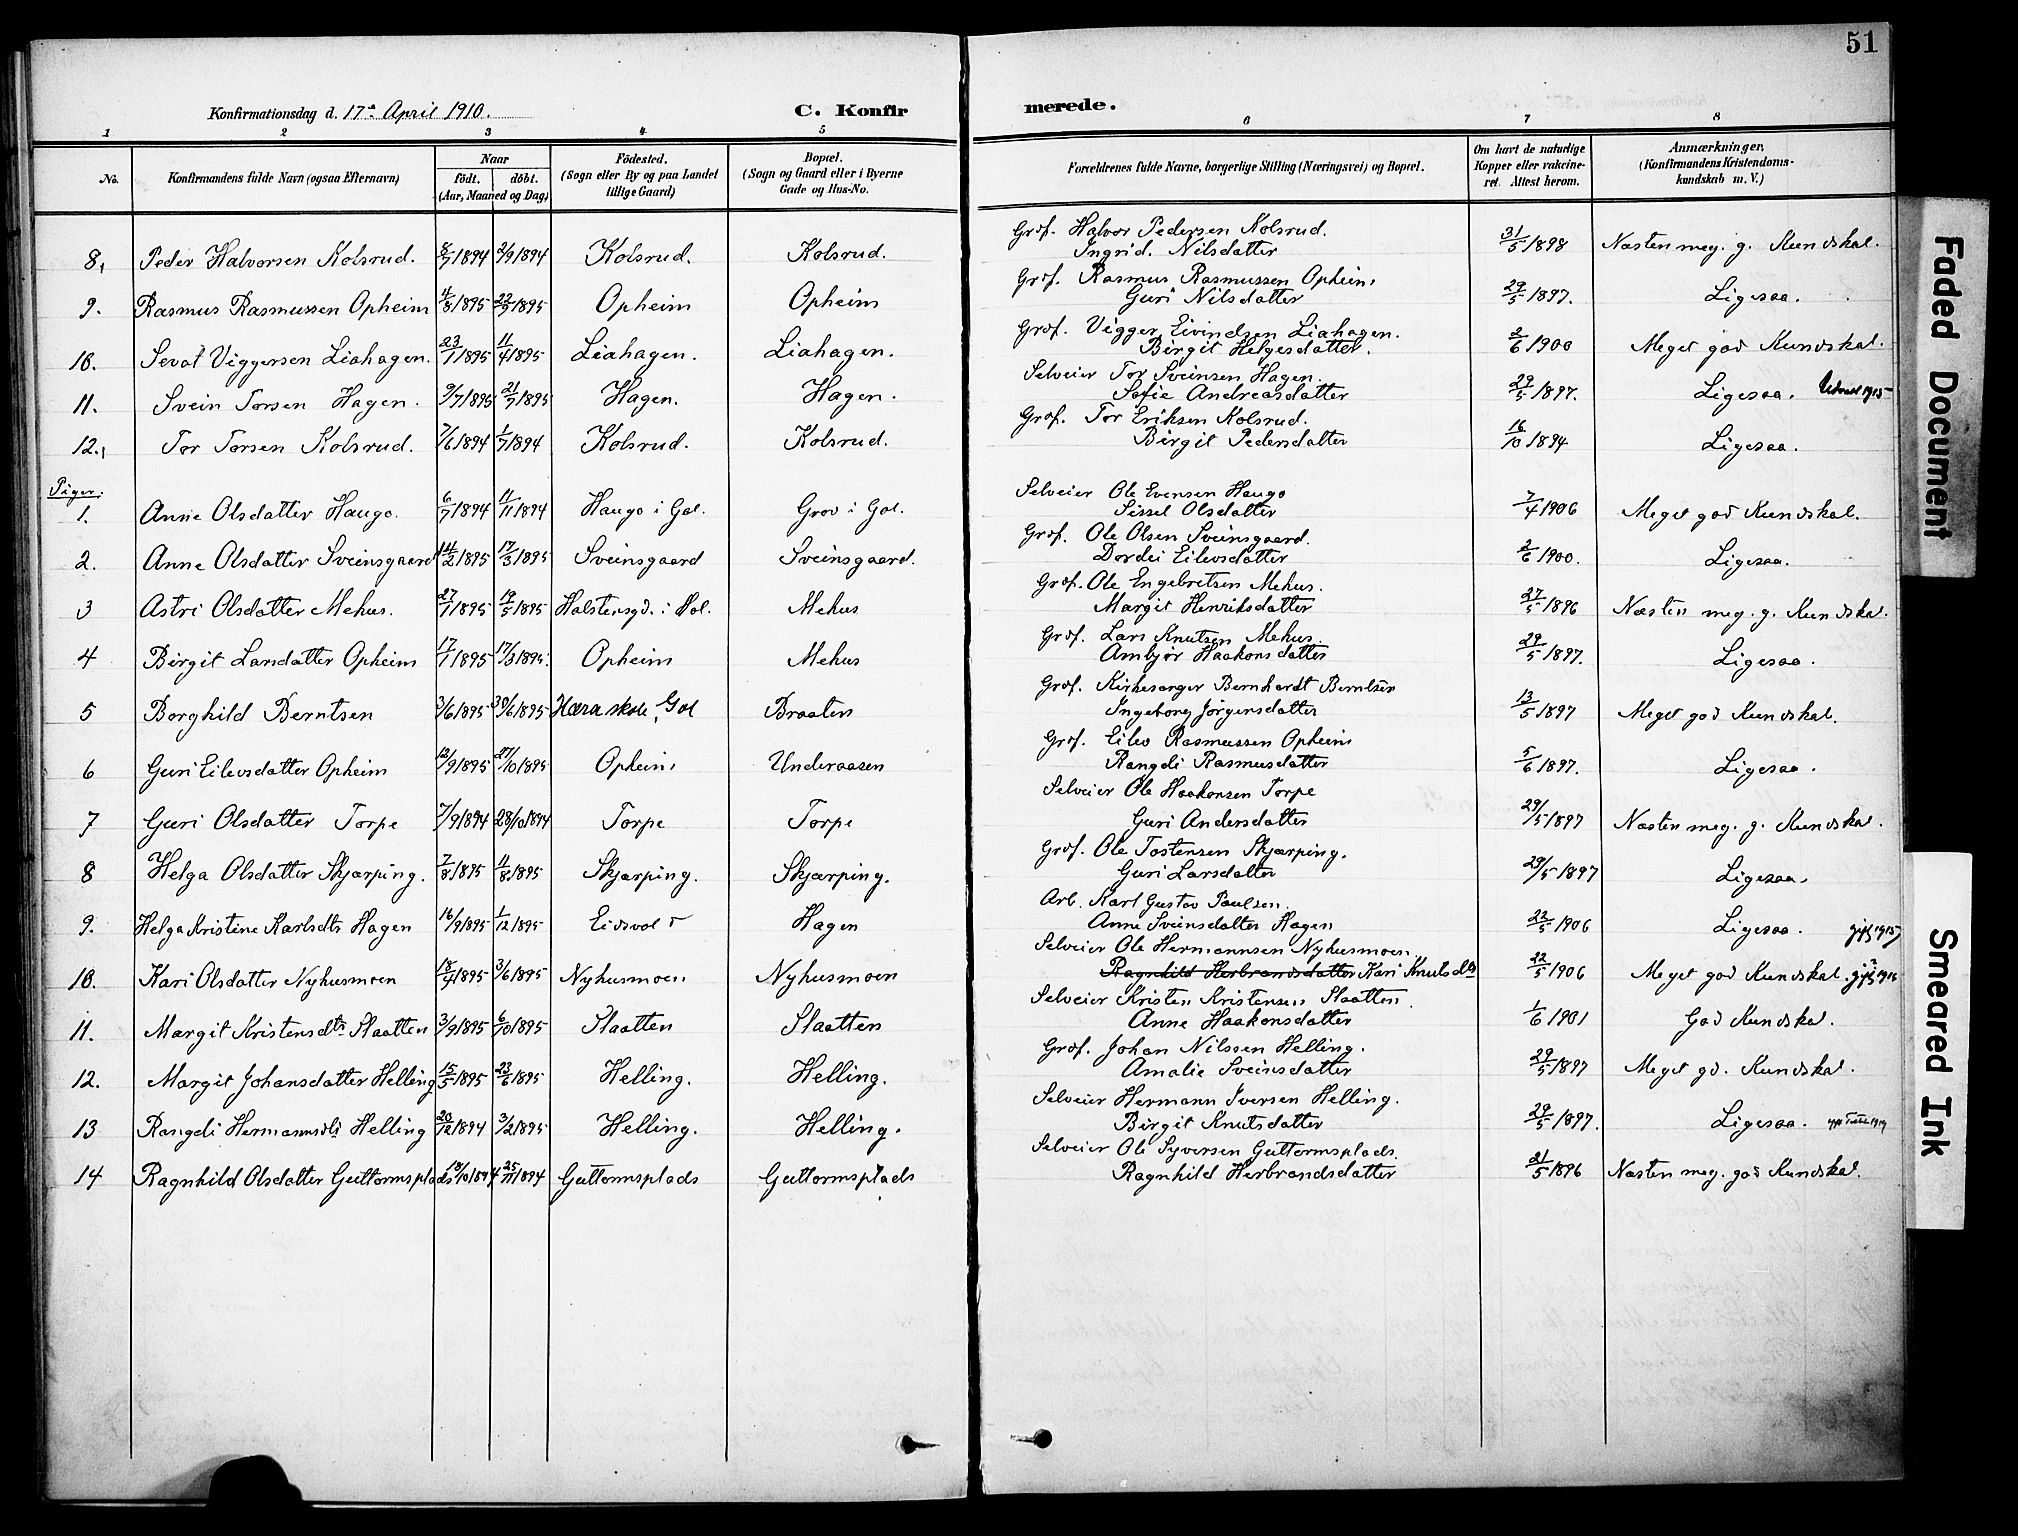 51
Konfirmationsdag d. 17de April 1910.
C. Konfirmerede.
1 2 3 4 5 6 7 8
No. Konfirmandens fulde Navn (ogsaa Efternavn) Naar født. døbt. (Aar, Maaned og Dag) Fødested. (Sogn eller By og paa Landet tillige Gaard) Bopæl. (Sogn og Gaard eller i Byerne Gade og Hus-No. Forældrenes fulde Navne, borgerlige Stilling (Næringsvei) og Bopæl. Om havt de naturlige Kopper eller vakcineret. Attest herom. Anmærkninger. (Konfirmandens Kristendomskundskab m. V.)
8. Peder Halvorsen Kolsrud. 8/7 1894 2/9 1894 Kolsrud. Kolsrud. Grbr. Halvor Pedersen Kolsrud. Ingrid Nilsdatter 31/5 1898 Næsten meg. g. Kundskab.
9. Rasmus Rasmussen Opheim 4/8 1895 22/9 1895 Opheim Opheim Grbr. Rasmus Rasmussen Opheim Guri Nilsdatter 29/5 1897. Ligesaa.
10. Sevat Viggersen Liahagen. 23/1 1895 11/4 1895 Liahagen. Liahagen. Grbr. Vigger Eivindsen Liahagen. Birgit Helgesdatter. 2/6 1900 Meget god Kundskab.
11. Svein Torsen Hagen. 9/7 1895 21/7 1895 Hagen. Hagen. Selveier Tor Sveinsen Hagen. Sofie Andreasdatter 29/5 1897. Ligesaa. 1915
12. Tor Torsen Kolsrud. 7/6 1894 1/7 1894 Kolsrud. Kolsrud. Grbr. Tor Eriksen Kolsrud. Birgit Pedersdatter 16/10 1894 Ligesaa.
Piger:
1. Anne Olsdatter Haugo. 6/7 1894 11/11 1894 Haugo i Gol. Grov i Gol. Selveier Ole Evensen Haugo Sissel Olsdatter 7/4 1906 Meget god Kundskab.
2. Anne Olsdatter Sveinsgaard 14/2 1895 17/3 1895 Sveinsgaard Sveinsgaard. Grbr. Ole Olsen Sveinsgaard. Dordei Eilevsdatter 2/6 1900. Ligesaa.
3 Astri Olsdatter Mehus. 27/1 1895 19/5 1895 Halstensgd. i Hol. Mehus Grbr. Ole Engebretsen Mehus. Margit Henriksdatter 27/5 1896 Næsten meg. g. Kundskab.
4 Birgit Larsdatter Opheim 17/1 1895 17/3 1895. Opheim Mehus Grbr. Lars Knutsen Mehus. Ambjør Haakonsdatter 29/5 1897. Ligesaa.
5 Borghild Berntsen 3/6 1895 30/6 1895 Hæra skole, Gol Braaten Grbr. Kirkesanger Bernhardt Berntsen Ingeborg Jørgensdatter 13/5 1897 Meget god Kundskab.
6 Guri Eilevsdatter Opheim 12/9 1895 27/10 1895 Opheim Underaasen Grbr. Eilev Rasmussen Opheim Rangdi Rasmusdatter 5/6 1897. Ligesaa.
7 Guri Olsdatter Torpe 7/9 1894 28/10 1894 Torpe Torpe Selveier Ole Haakonsen Torpe Guri Andersdatter 29/5 1897 Næsten meg. g. Kundskab.
8 Helga Olsdatter Skjærping. 7/8 1895 11/8 1895 Skjærping. Skjærping. Grbr. Ole Tostensen Skjærping. Guri Larsdatter 29/5 1897 Ligesaa.
9. Helga Kristine Karlsdtr Hagen 16/9 1895 1/12 1895 Eidsvold Hagen Arb. Karl Gustav Paulsen. Anne Sveinsdatter Hagen 22/5 1906 Ligesaa. gift 1915
10. Kari Olsdatter Nyhusmoen 18/4 1895 3/6 1895 Nyhusmoen Nyhusmoen Selveier Ole Hermannsen Nyhusmoen. Ragnhild Herbrandsdatter Kari Knutsdtr 22/5 1906 Meget god Kundskab. gift 1915
11. Margit Kristensdtr Slaatten 3/9 1895 6/10 1895 Slaatten Slaatten Selveier Kristen Kristensen Slaatten. Anne Haakonsdatter 1/6 1901 God Kundskab.
12. Margit Johansdatter Helling 15/5 1895 23/6 1895 Helling. Helling. Grbr. Johan Nilssen Helling. Amalie Sveinsdatter 29/5 1897 Meget gd. Kundskab.
13 Rangdi Hermannsdtr Helling 20/12 1894 3/2 1895 Helling. Helling. Selveier Hermann Iversen Helling. Birgit Knutsdatter 29/5 1897. Ligesaa. 1919
14 Ragnhild Olsdatter Guttormsplads 13/10 1894 25/11 1894 Guttormsplads Guttormsplads Selveier Ole Syversen Guttormsplads. Ragnhild Herbrandsdatter 21/5 1896 Næsten meg. god Kundskab.
Faded Document
Smeared Ink